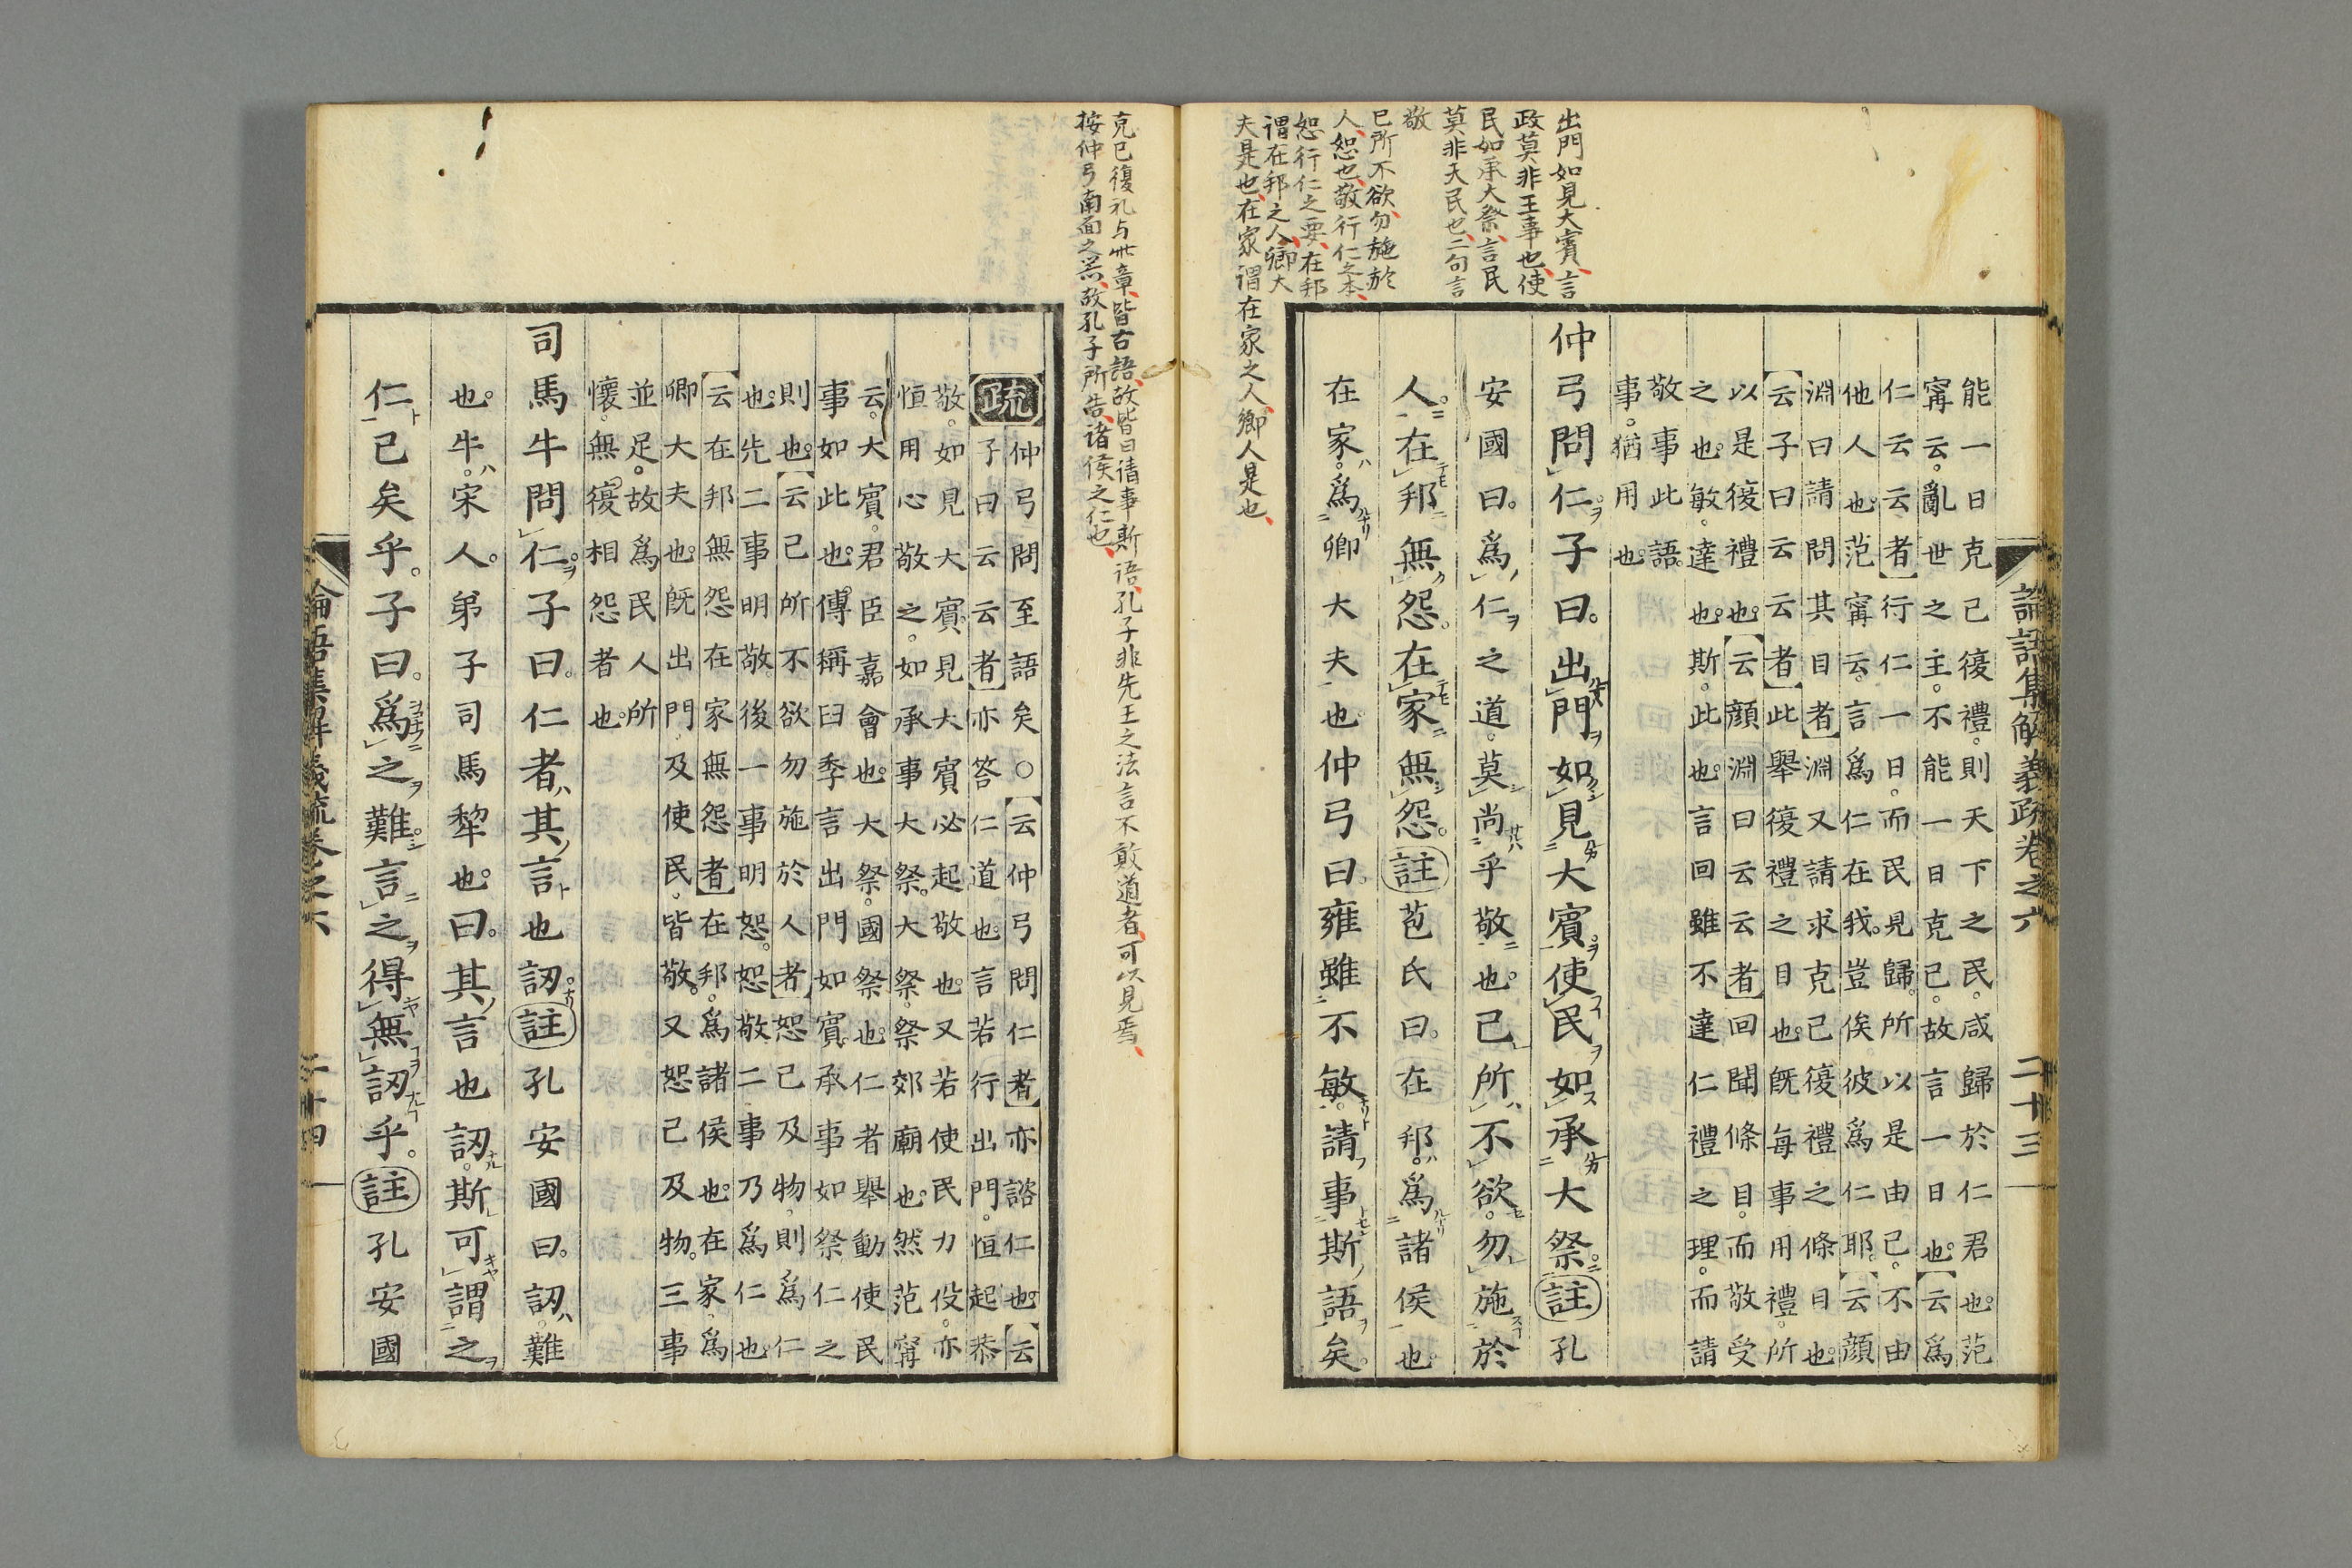 出門如見大賓、言
政莫非王事也、使
民如承大祭、言民
莫非天民也、二句言
敬
己所不欲、勿施於
人、恕也、敬行仁之本、
恕行仁之要、在邦
謂在邦之人、卿大
夫是也、在家謂在家之人、鄉人是也、
能一日克己復禮。則天下之民。咸歸於仁君也。范
甯云。亂世之主。不能一日克己。故言一日也。【云爲
仁云云者】行仁一日。而民見歸。所以是由己。不由
他人也。范甯云。言爲仁在我。豈俟彼爲仁耶。【云顔
淵曰請問其目者】淵又請求克己復禮之條目也。
【云子曰云云者】此舉復禮之目也。既每事用禮。所
以是復禮也。【云顔淵曰云云者】回聞條目。而敬受
之也。敏。達也。斯。此也。言回雖不達仁禮之理。而請
敬事此語。
事。猶用也。
仲弓問仁。子曰。出門如見大賓。使民如承大祭。註孔
安國曰。爲仁之道。莫尚乎敬也。己所不欲。勿施於
人。在邦無怨。在家無怨。註苞氏曰。在邦。爲諸侯也。
在家。爲卿大夫也仲弓曰。雍雖不敏。請事斯語矣。
論語集解義疏卷之六 二十三
克己復礼与此章、皆古語、故皆曰請事斯語、孔子非先王之法言不敢道者、可以見焉、
按仲弓南面之器、故孔子所告、諸侯之仁也、
疏仲弓問至語矣○【云仲弓問仁者】亦諮仁也。【云
子曰云云者】亦答仁道也。言若行出門。恒起恭
敬。如見大賓。見大賓必起敬也。又若使民力役。亦
恒用心敬之。如承事大祭。大祭。祭郊廟也。然范甯
云。大賓。君臣嘉會也。大祭。國祭也。仁者舉動使民
事如此也。傳稱臼季言出門如賓。承事如祭。仁之
則也。【云己所不欲勿施於人者】恕己及物。則爲仁
也。先二事明敬。後一事明恕。恕敬二事乃爲仁也。
【云在邦無怨在家無怨者】在邦。爲諸侯也。在家。爲
卿大夫也。既出門及使民。皆敬。又恕己及物。三事
並足。故爲民人所
懷。無復相怨者也。
司馬牛問仁。子曰。仁者其言也訒。註孔安國曰。訒。難
也。牛。宋人。弟子司馬犂也。曰。其言也訒。斯可謂之
仁已矣乎。子曰。爲之難。言之得無訒乎。註孔安國
論語集解義疏卷之六 二十四